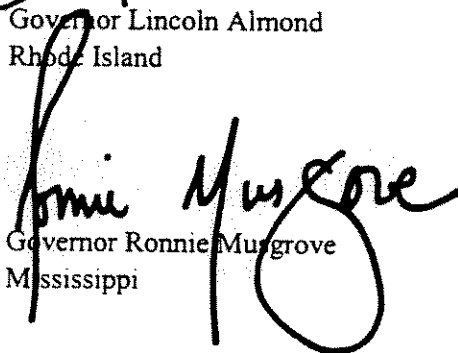 Governor Lincoln Almond
Rhode Island
Ronnie Musgrove
Governor Ronnie Musgrove
Mississippi